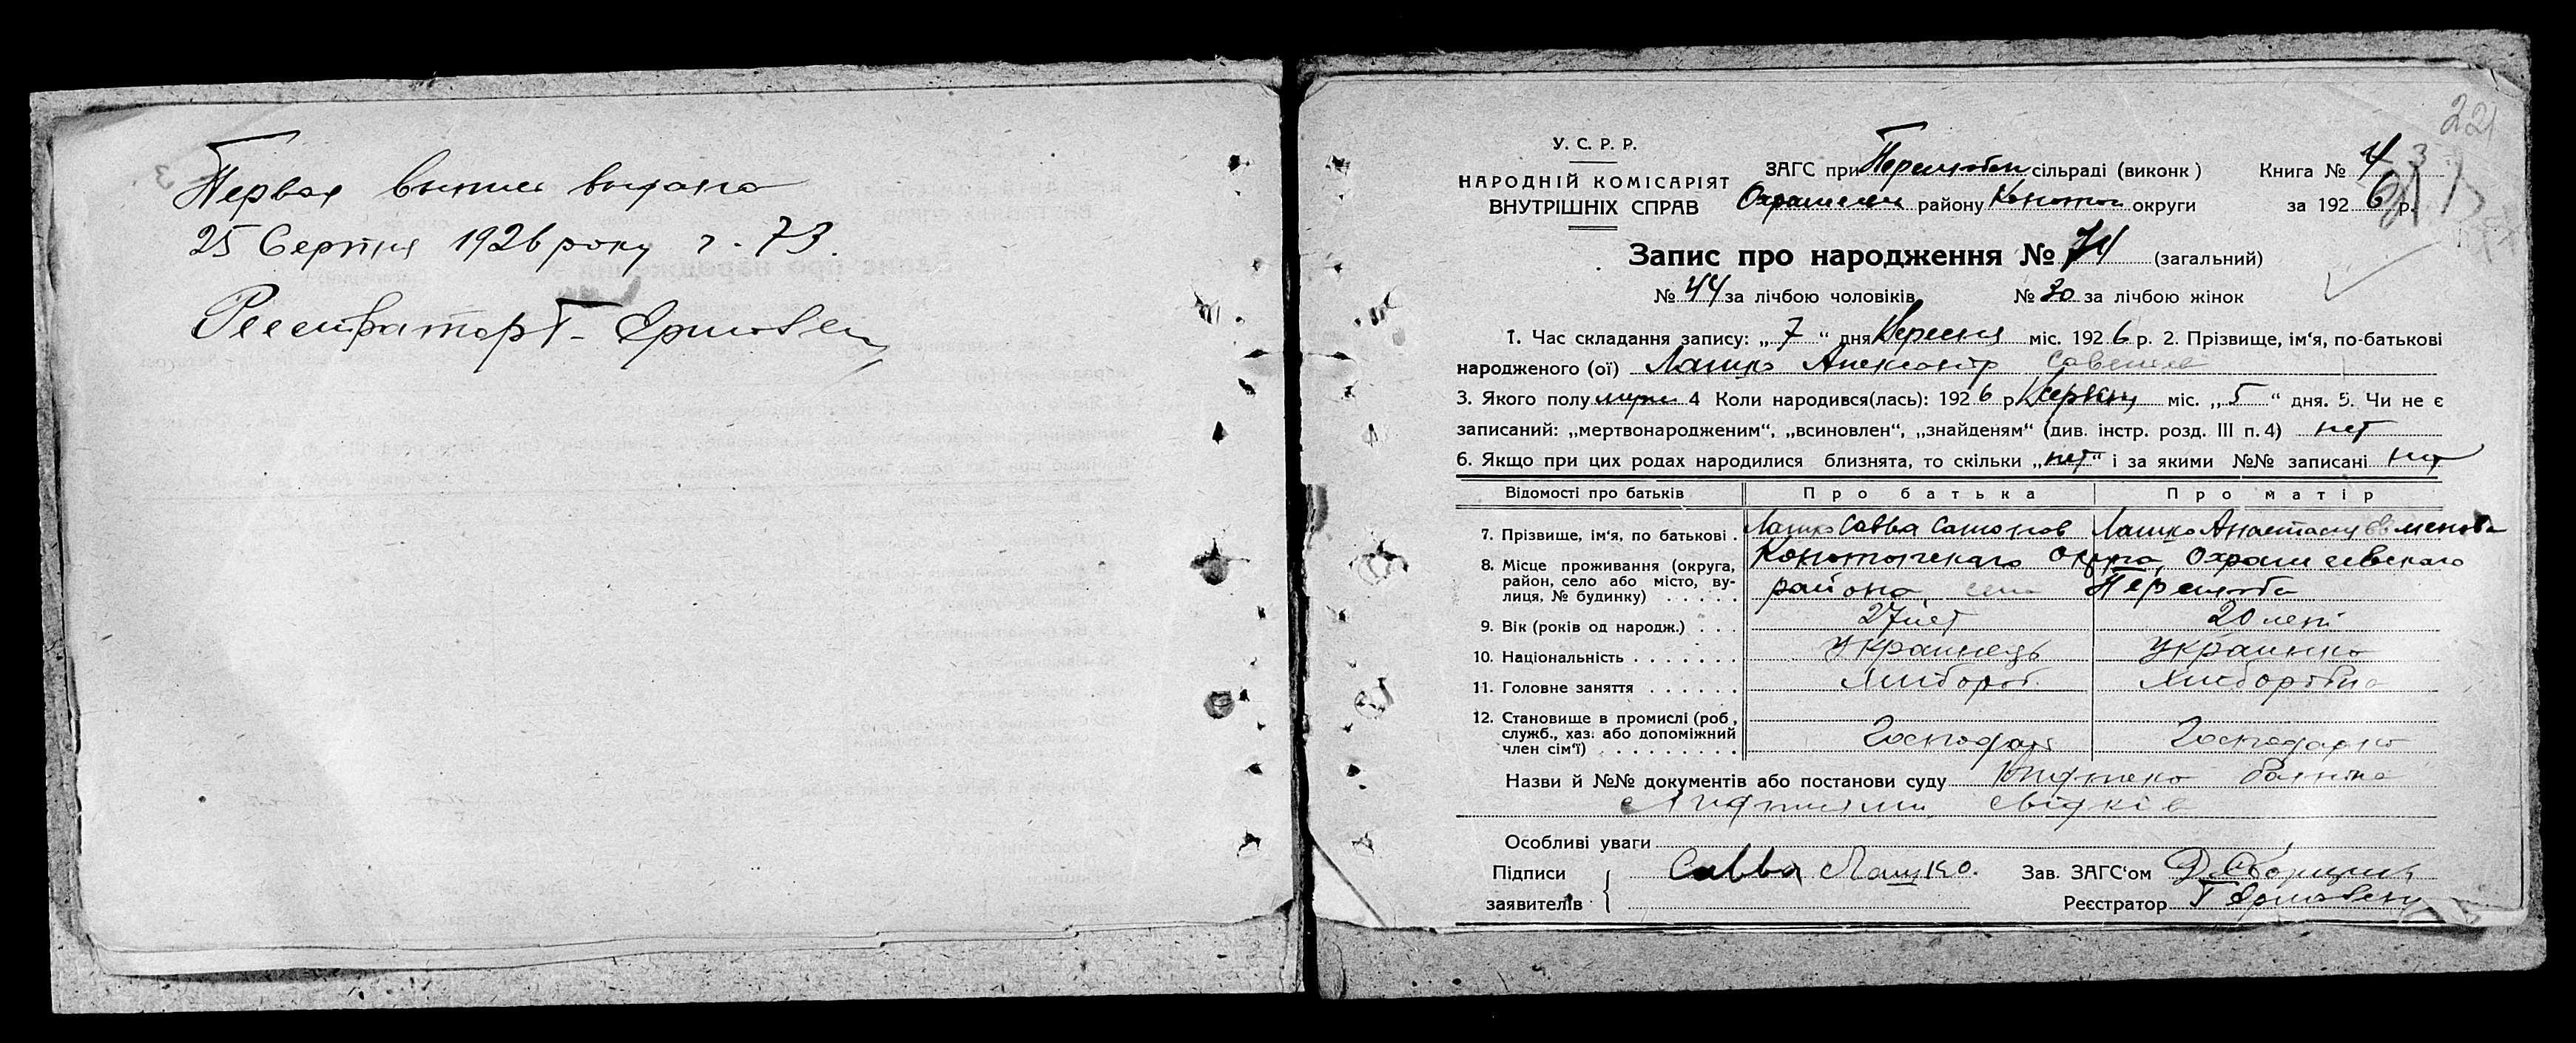 Первая выпис выдана
25 Серпня 1926 року г. 73.
Реестратор Г.
22
У. С. Р. Р.
НАРОДНІЙ КОМІСАРІЯТ
ВНУТРІШНІХ СПРАВ
ЗАГС при сільраді (виконк)
району Конотоп округи
Книга № 4
за 1926 р.
Запис про народження № 74 (загальний)
№ 44 за лічбою чоловіків № 30 за лічбою жінок
1. Час складання запису: „7“ дня Вересня міс. 1926 р. 2. Прізвище, ім'я, по-батькові
народженого (ої) Лашко Александр
3. Якого полу муж 4 Коли народився(лась): 1926 р. міс. „5“ дня. 5. Чи не є
записаний: „мертвонародженим“, „всиновлен“, „знайденям“ (див. інстр. розд. III п. 4) нет
6. Якщо при цих родах народилися близнята, то скільки „нет“ і за якими №№ записані нет
Відомості про батьків Про батька Про матір
7. Прізвище, ім'я, по батькові . Лашко Савва Лашко Анастасия
8. Місце проживання (округа, район, село або місто, вулиця, № будинку) . . . . . Конотопскаго Округа, Охрамеевскаго
района, села
9. Вік (років од народж.) . . . 27 лет 20 лет
10. Національність . . . . . . . Украинець Украинка
11. Головне заняття . . . . . . Хлибороб
12. Становище в промислі (роб, служб., хаз. або допоміжний член сім'ї) . . . . . . . . . Господарь Господарка
Назви й №№ документів або постанови суду
свідків
Особливі уваги
Підписи заявителів Савва Лашко. Зав. ЗАГС'ом
Реєстратор Г